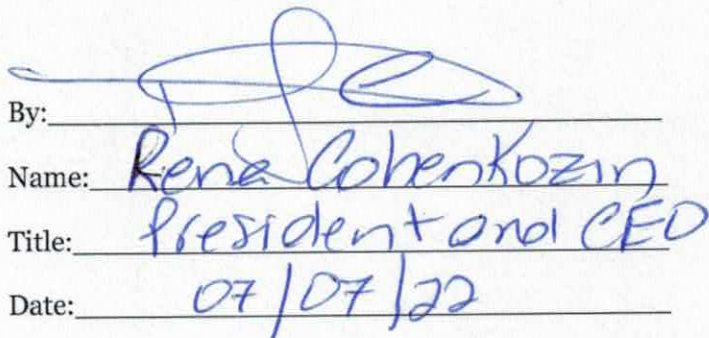 By:
Name: Rena CohenKozin
Title: President and CEO
Date: 07/07/22